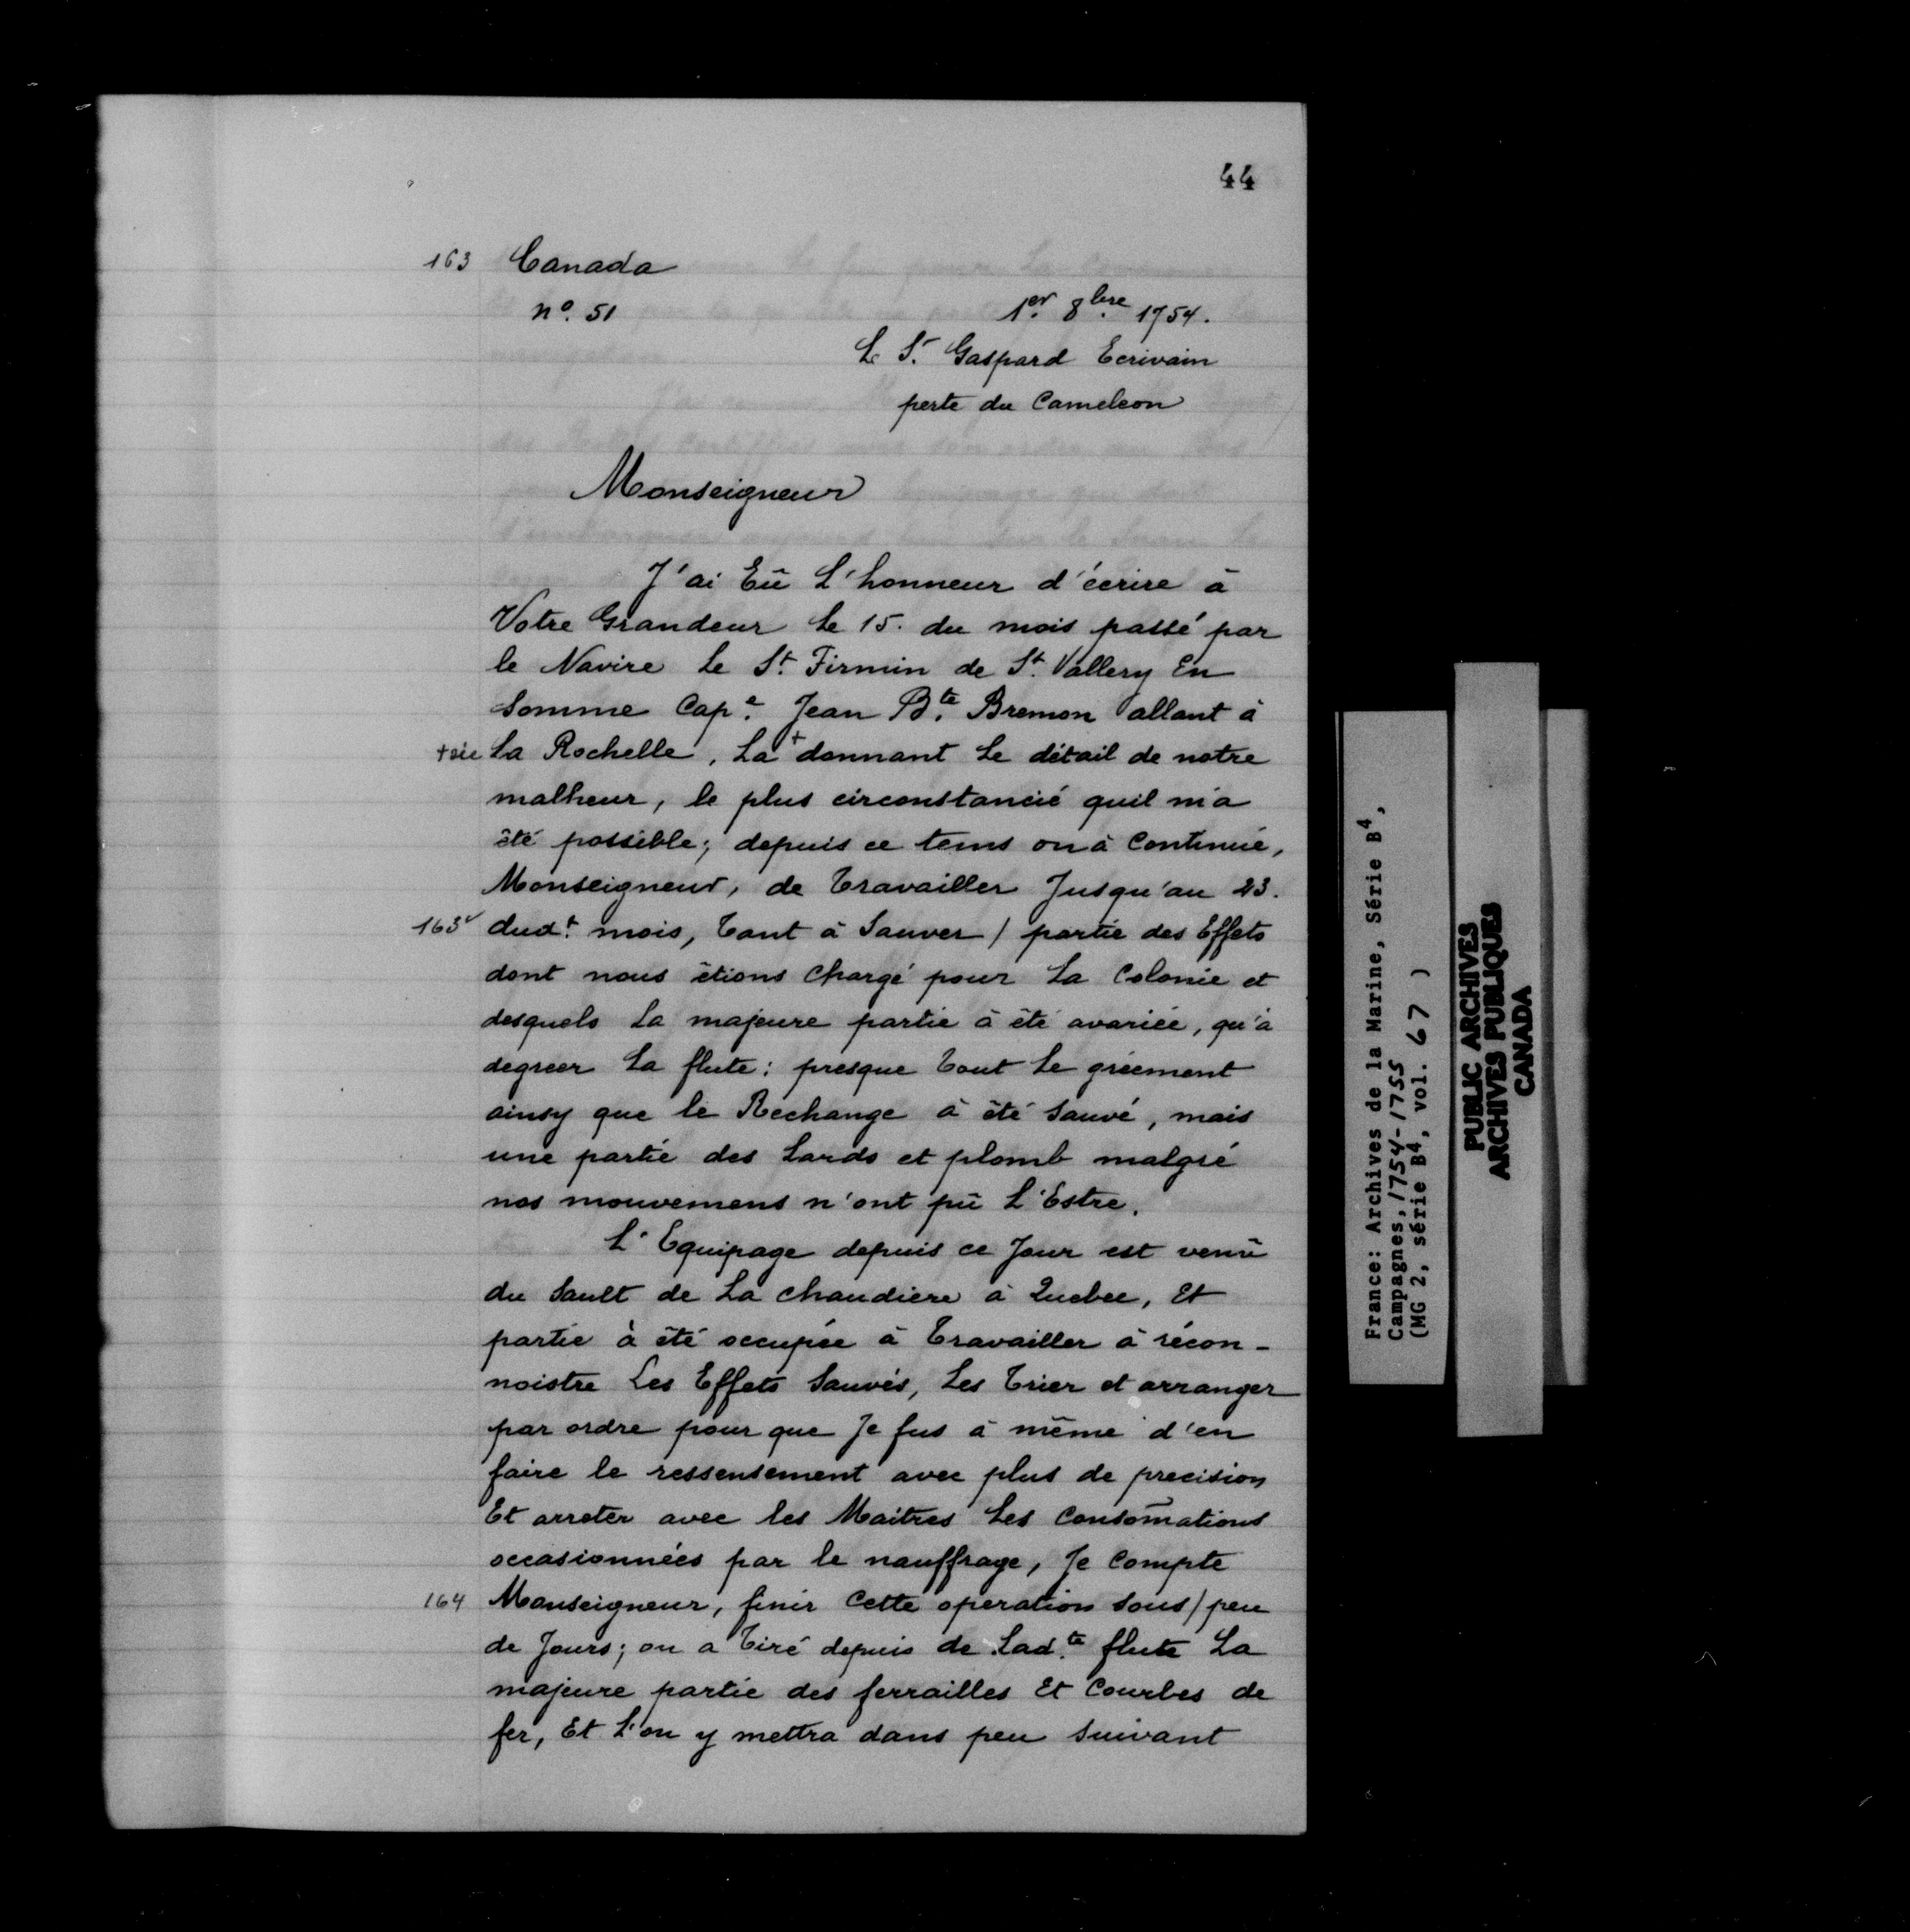 44
163 Canada
nº. 51
1er. 8bre. 1754.
Le Sr. Gaspard Ecrivain
perte du Cameleon
Monseigneur
J'ai Eû L'honneur d'écrire à
Votre Grandeur Le 15. du mois passé par
le Navire Le St. Firmin de St. Vallery En
Somme Cape. Jean Bte. Bremon allant à
+sic La Rochelle, La+ donnant Le détail de notre
malheur, le plus circonstancié quil m'a
été possible; depuis ce tems on à Continué,
Monseigneur, de Travailler Jusqu'au 23.
163v dudt. mois, Tant à Sauver / partie des Effets
dont nous étions Chargé pour La Colonie et
desquels La majeure partie à été avariée, qu'à
degreer La flute: presque Tout Le gréement
ainsy que le Rechange à été Sauvé, mais
une partie des Lards et plomb malgré
nos mouvemens n'ont pû L'Estre.
L'Equipage depuis ce Jour est venû
du Sault de La chaudiere à Quebec, Et
partie à été occupée à Travailler à récon-
noistre Les Effets Sauvés, Les Trier et arranger
par ordre pour que Je fus à même d'en
faire le ressensement avec plus de precision
Et arreter avec les Maitres Les Consom̄ations
occasionnées par le nauffrage, Je Compte
164 Monseigneur, finir Cette operation Sous / peu
de Jours; on a Tiré depuis de Ladte. flute La
majeure partie des ferrailles Et Courbes de
fer, Et L'on y mettra dans peu Suivant
France: Archives de la Marine, Série B4,
Campagnes, 1754-1755
(MG 2, série B4, vol. 67 )
PUBLIC ARCHIVES
ARCHIVES PUBLIQUES
CANADA